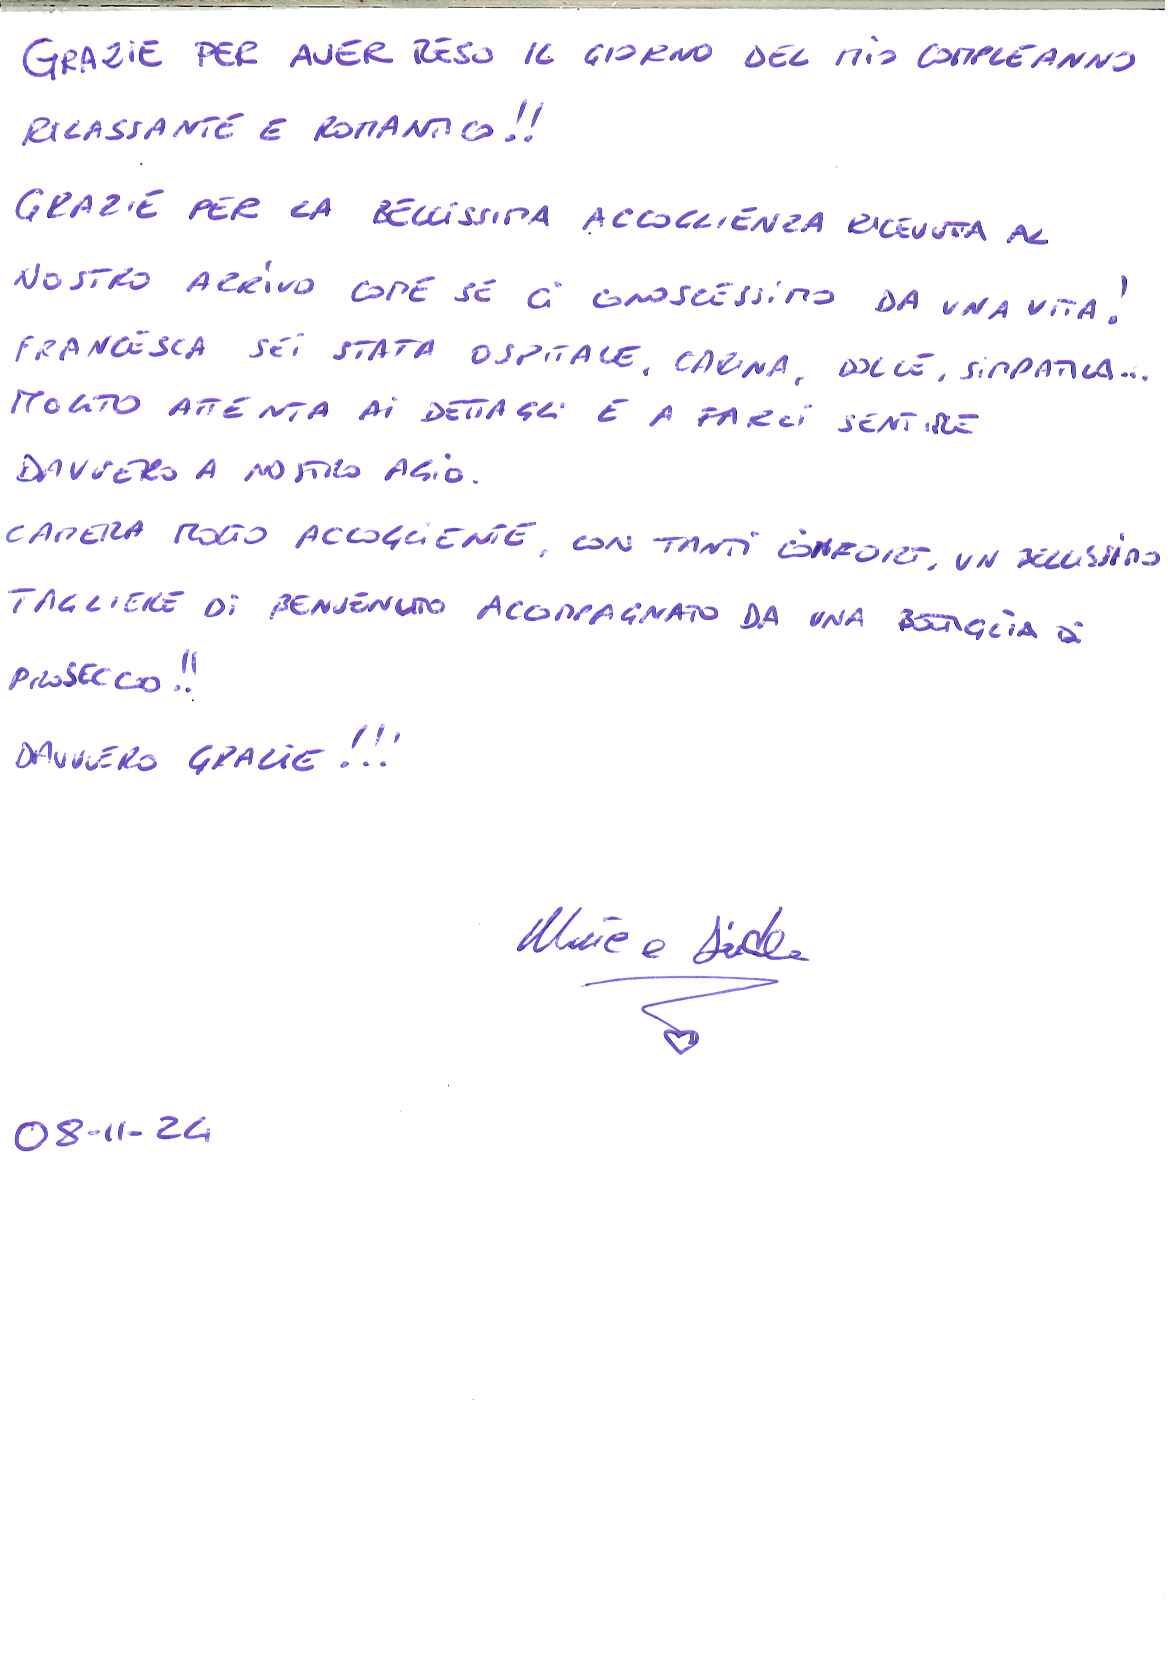 GRAZIE PER AVER RESO IL GIORNO DEL MIO COMPLEANNO
RILASSANTE E ROMANTICO!!
GRAZIE PER LA BELLISSIMA ACCOGLIENZA RICEVUTA AL
NOSTRO ARRIVO COME SE CI CONOSCESSIMO DA UNA VITA!
FRANCESCA SEI STATA OSPITALE, CARINA, DOLCE, SIMPATICA...
MOLTO ATTENTA AI DETTAGLI E A FARCI SENTIRE
DAVVERO A NOSTRO AGIO.
CAMERA MOLTO ACCOGLIENTE, CON TANTI COMFORT, UN BELLISSIMO
TAGLIERE DI BENVENUTO ACCOMPAGNATO DA UNA BOTTIGLIA DI
PROSECCO!!
DAVVERO GRAZIE!!!
e
08-11-24